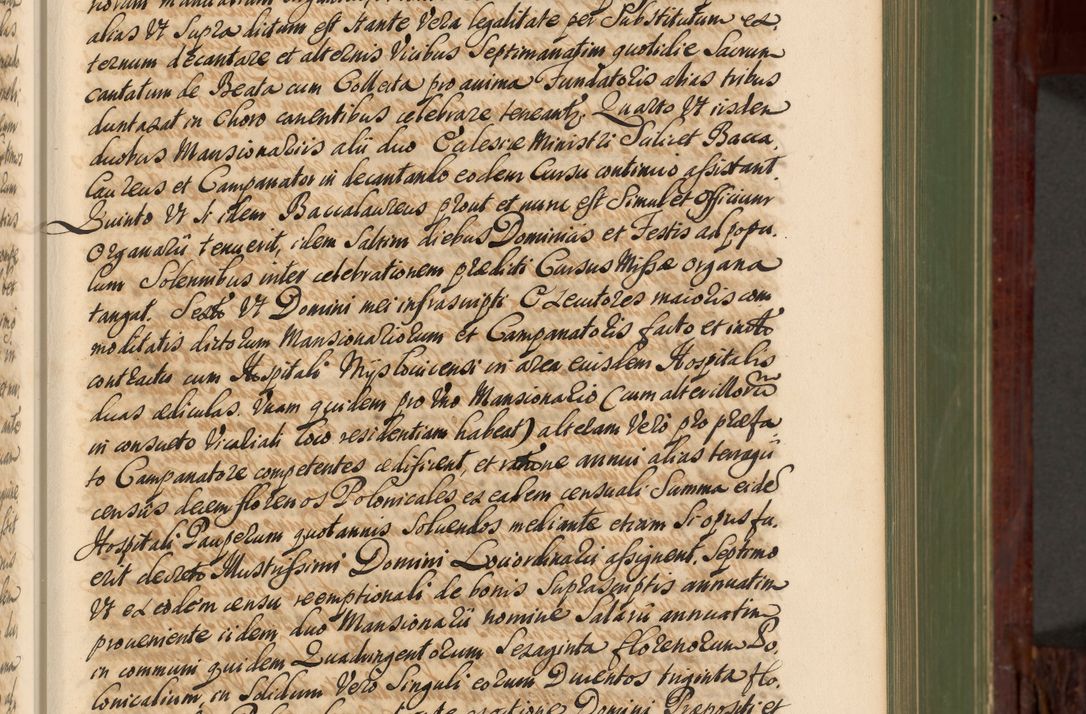 alias Vt Supra dictum est stante Vera legalitate per Substitutum ex,
ternum decantare et alternis Vicibus Septimanatim quotidie Sacrum
cantatum de Beata cum Collecta pro anima Fundatoris alias tribus
duntaxat in Choro canentibus celebrare teneantr, Quarto Vt iisdem
duobus Mansionariis alii duo Eclesiæ Ministri Scilicet Bacca,
laureus et Campanator in decantando eodem Cursu continuo assistant.
Quinto Vt Si idem Baccalaureus prout et nunc est Simul et Officium
Organarii tenuerit, idem Saltim diebus Dominicis et Festis ad popu,
lum Solennibus inter celebrationem prædicti Cursus Missæ organa
tangat. Sexto Vt Domini mei infrascripti Executores maioris com
moditatis dictorum Mansionariorum et Campanatoris facto et inito
contractu cum Hospitali Myslovicensi in area eiusdem Hospitalis
duas ædiculas. Unam quidem pro Uno Mansionario (cum alter illorum
in consueto Vicariali loco residentiam habeat) alteram Vero pro præfa
to Campanatore competentes ædificent, et ratione annui alias terragii
censûs decem florenos Polonicales ex eadem censuali Summa eidem
Hospitali Pauperum quotannis Solvendos mediante etiam Si opus fu,
erit decreto Illustrissimi Domini Lociordinarii assignent. Septimo
Vt ex eodem censu reemptionali de bonis Suprascriptis annuatim
proveniente iidem duo Mansionarii nomine Salarii annuatim
in communi quidem Quadringentorum Sexaginta florenorum Po,
lonicalium, in Solidum Vero Singuli eorum Ducentos triginta flo,
Domini Præpositi et